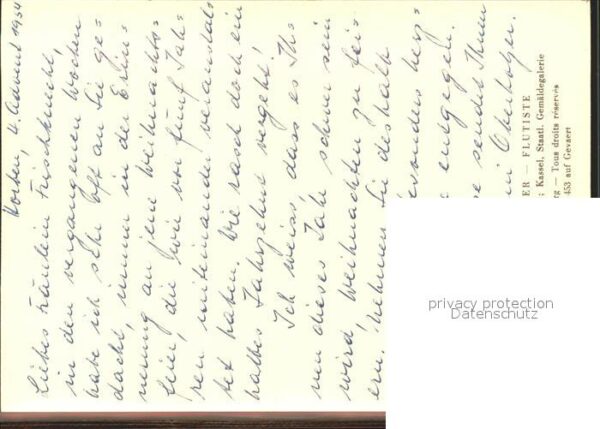 Horben, 4. Advent 1954
Liebes Fräulein Frischknecht,
in den vergangenen Wochen
habe ich sehr oft an Sie ge-
dacht, immer in der Erin-
nerung an jene Weihnachts-
feier, die wir vor fünf Jah-
ren miteinander veranstal-
tet haben. Wie rasch doch ein
halbes Jahrzehnt vergeht!
Ich weiss, dass es Ih-
nen dieses Jahr schwer sein
wird, Weihnachten zu fei-
ern. Nehmen Sie deshalb
besonders herz-
entgegen.
sendet Ihnen
Oberholzer.
ER — FLUTISTE
: Kassel, Staatl. Gemäldegalerie
rg — Tous droits réservés
453 auf Gevaert
privacy protection
Datenschutz